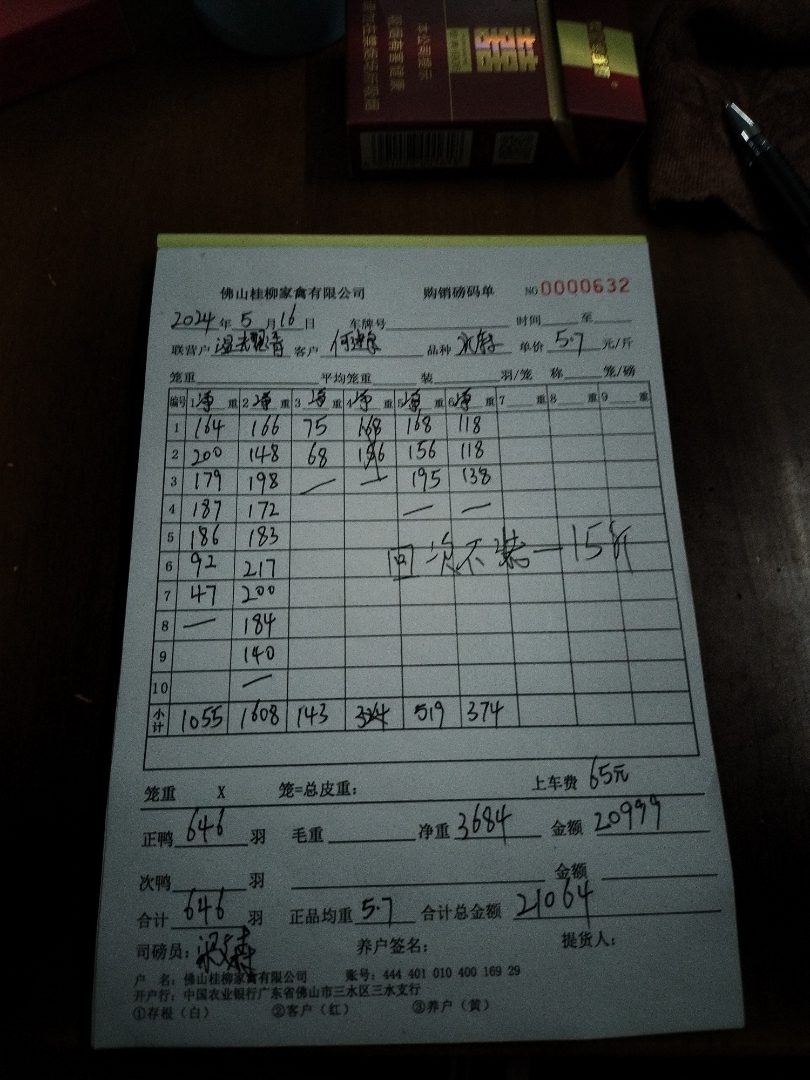 本公司提示
吸烟有害健康
请勿在禁烟场所吸烟
佛山桂柳家禽有限公司 购销磅码单 NO 0000632
2024 年 5 月 16 日 车牌号 时间 至
联营户 客户 品种 单价 5.7 元/斤
笼重 平均笼重 装 羽/笼 称 笼/磅
编号 1 净 重 2 净 重 3 净 重 4 净 重 5 净 重 6 净 重 7 重 8 重 9 重
1 164 166 75 168 168 118
2 200 148 68 156 156 118
3 179 198 — — 195 138
4 187 172 — —
5 186 183
6 92 217 回 次不装 — 15斤
7 47 200
8 — 184
9 140
10 —
小计 1055 1608 143 324 519 374
笼重 X 笼=总皮重: 上车费 65元
正鸭 646 羽 毛重 净重 3684 金额 20999
次鸭 羽 金额
合计 646 羽 正品均重 5.7 合计总金额 21064
司磅员: 养户签名: 提货人:
户 名: 佛山桂柳家禽有限公司 账号: 444 401 010 400 169 29
开户行: 中国农业银行广东省佛山市三水区三水支行
①存根(白) ②客户(红) ③养户(黄)